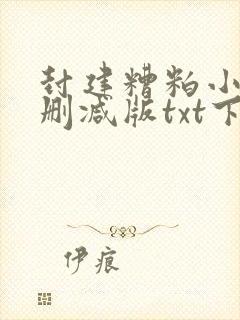 封建糟粕小
删减版txt下
伊痕